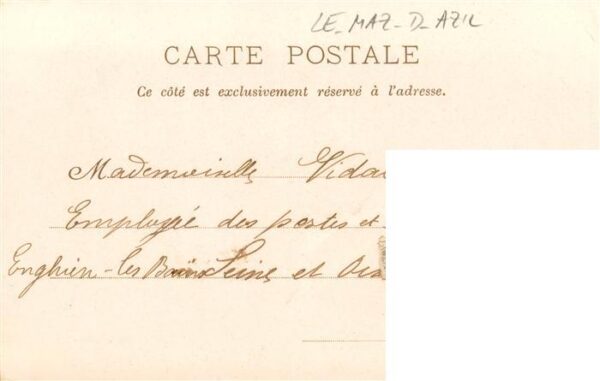 LE_MAZ_D_AZIL
CARTE POSTALE
Ce côté est exclusivement réservé à l'adresse.
Mademoiselle Vida
Employée des postes et
Enghien-les Bains Seine et Ois